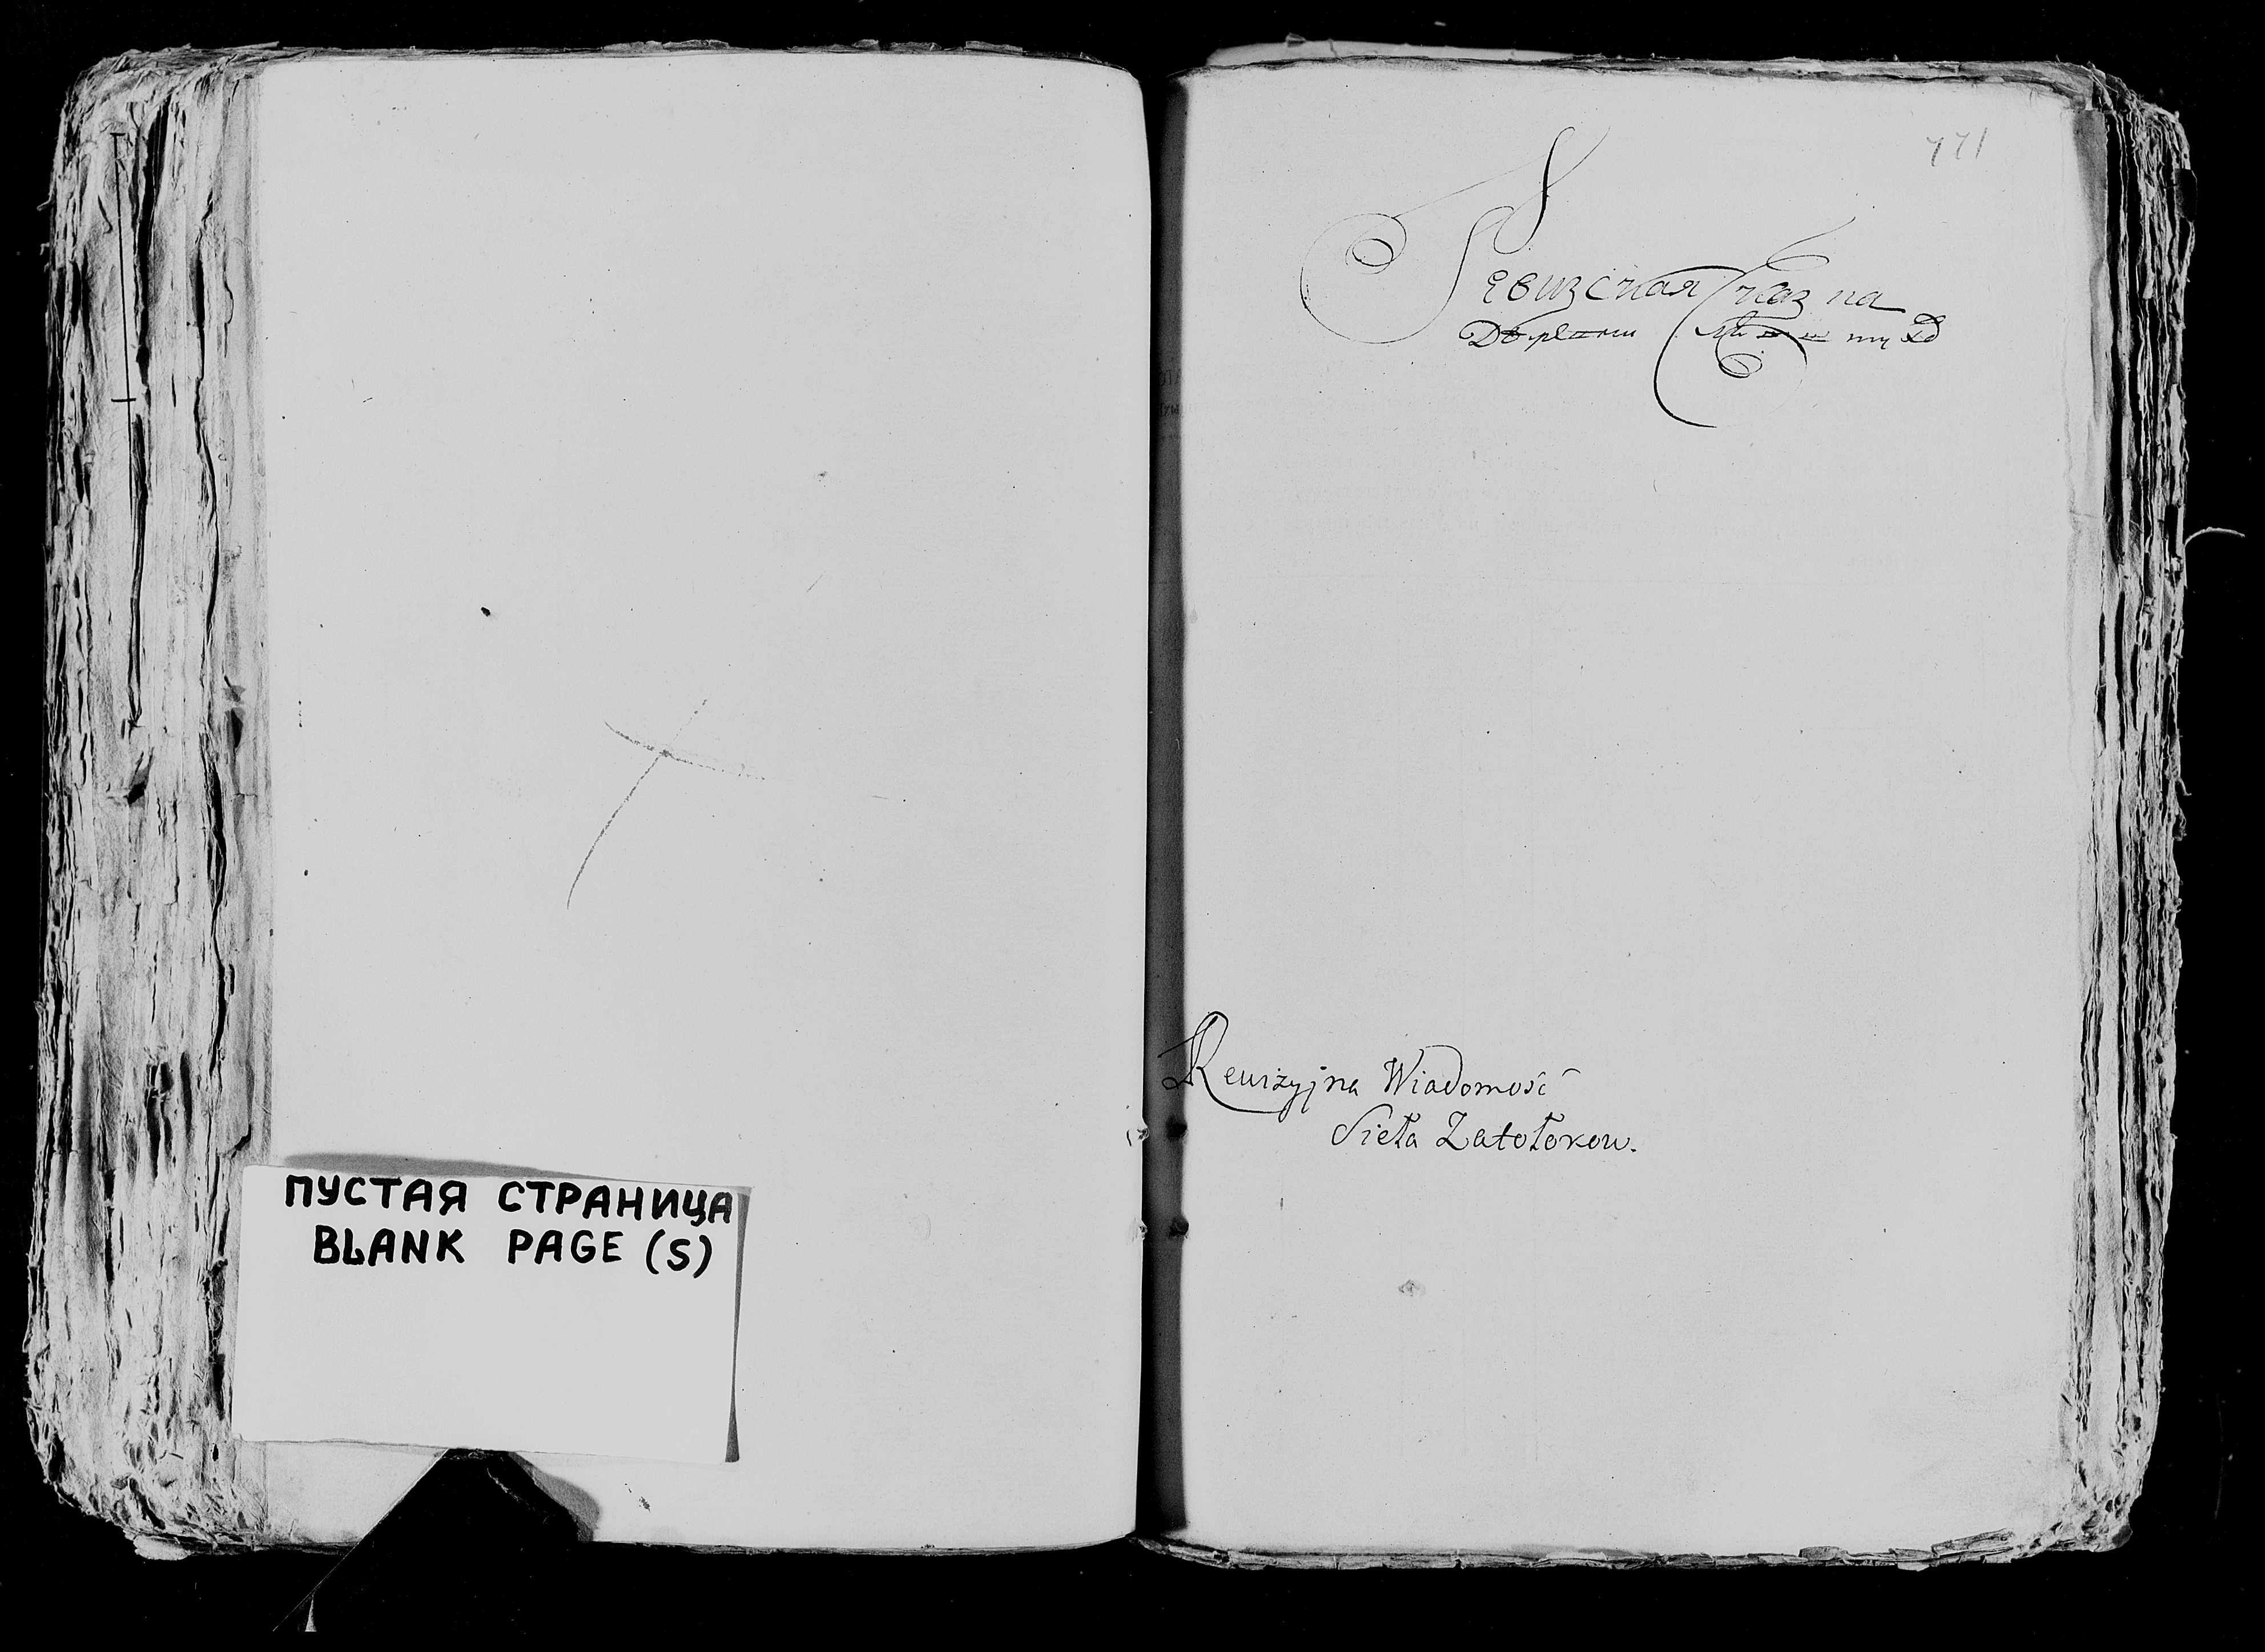 ПУСТАЯ СТРАНИЦА
BLANK PAGE (S)
771
Ревизская Сказка
Rewizyjna Wiadomość
Sieła Zatołokow.